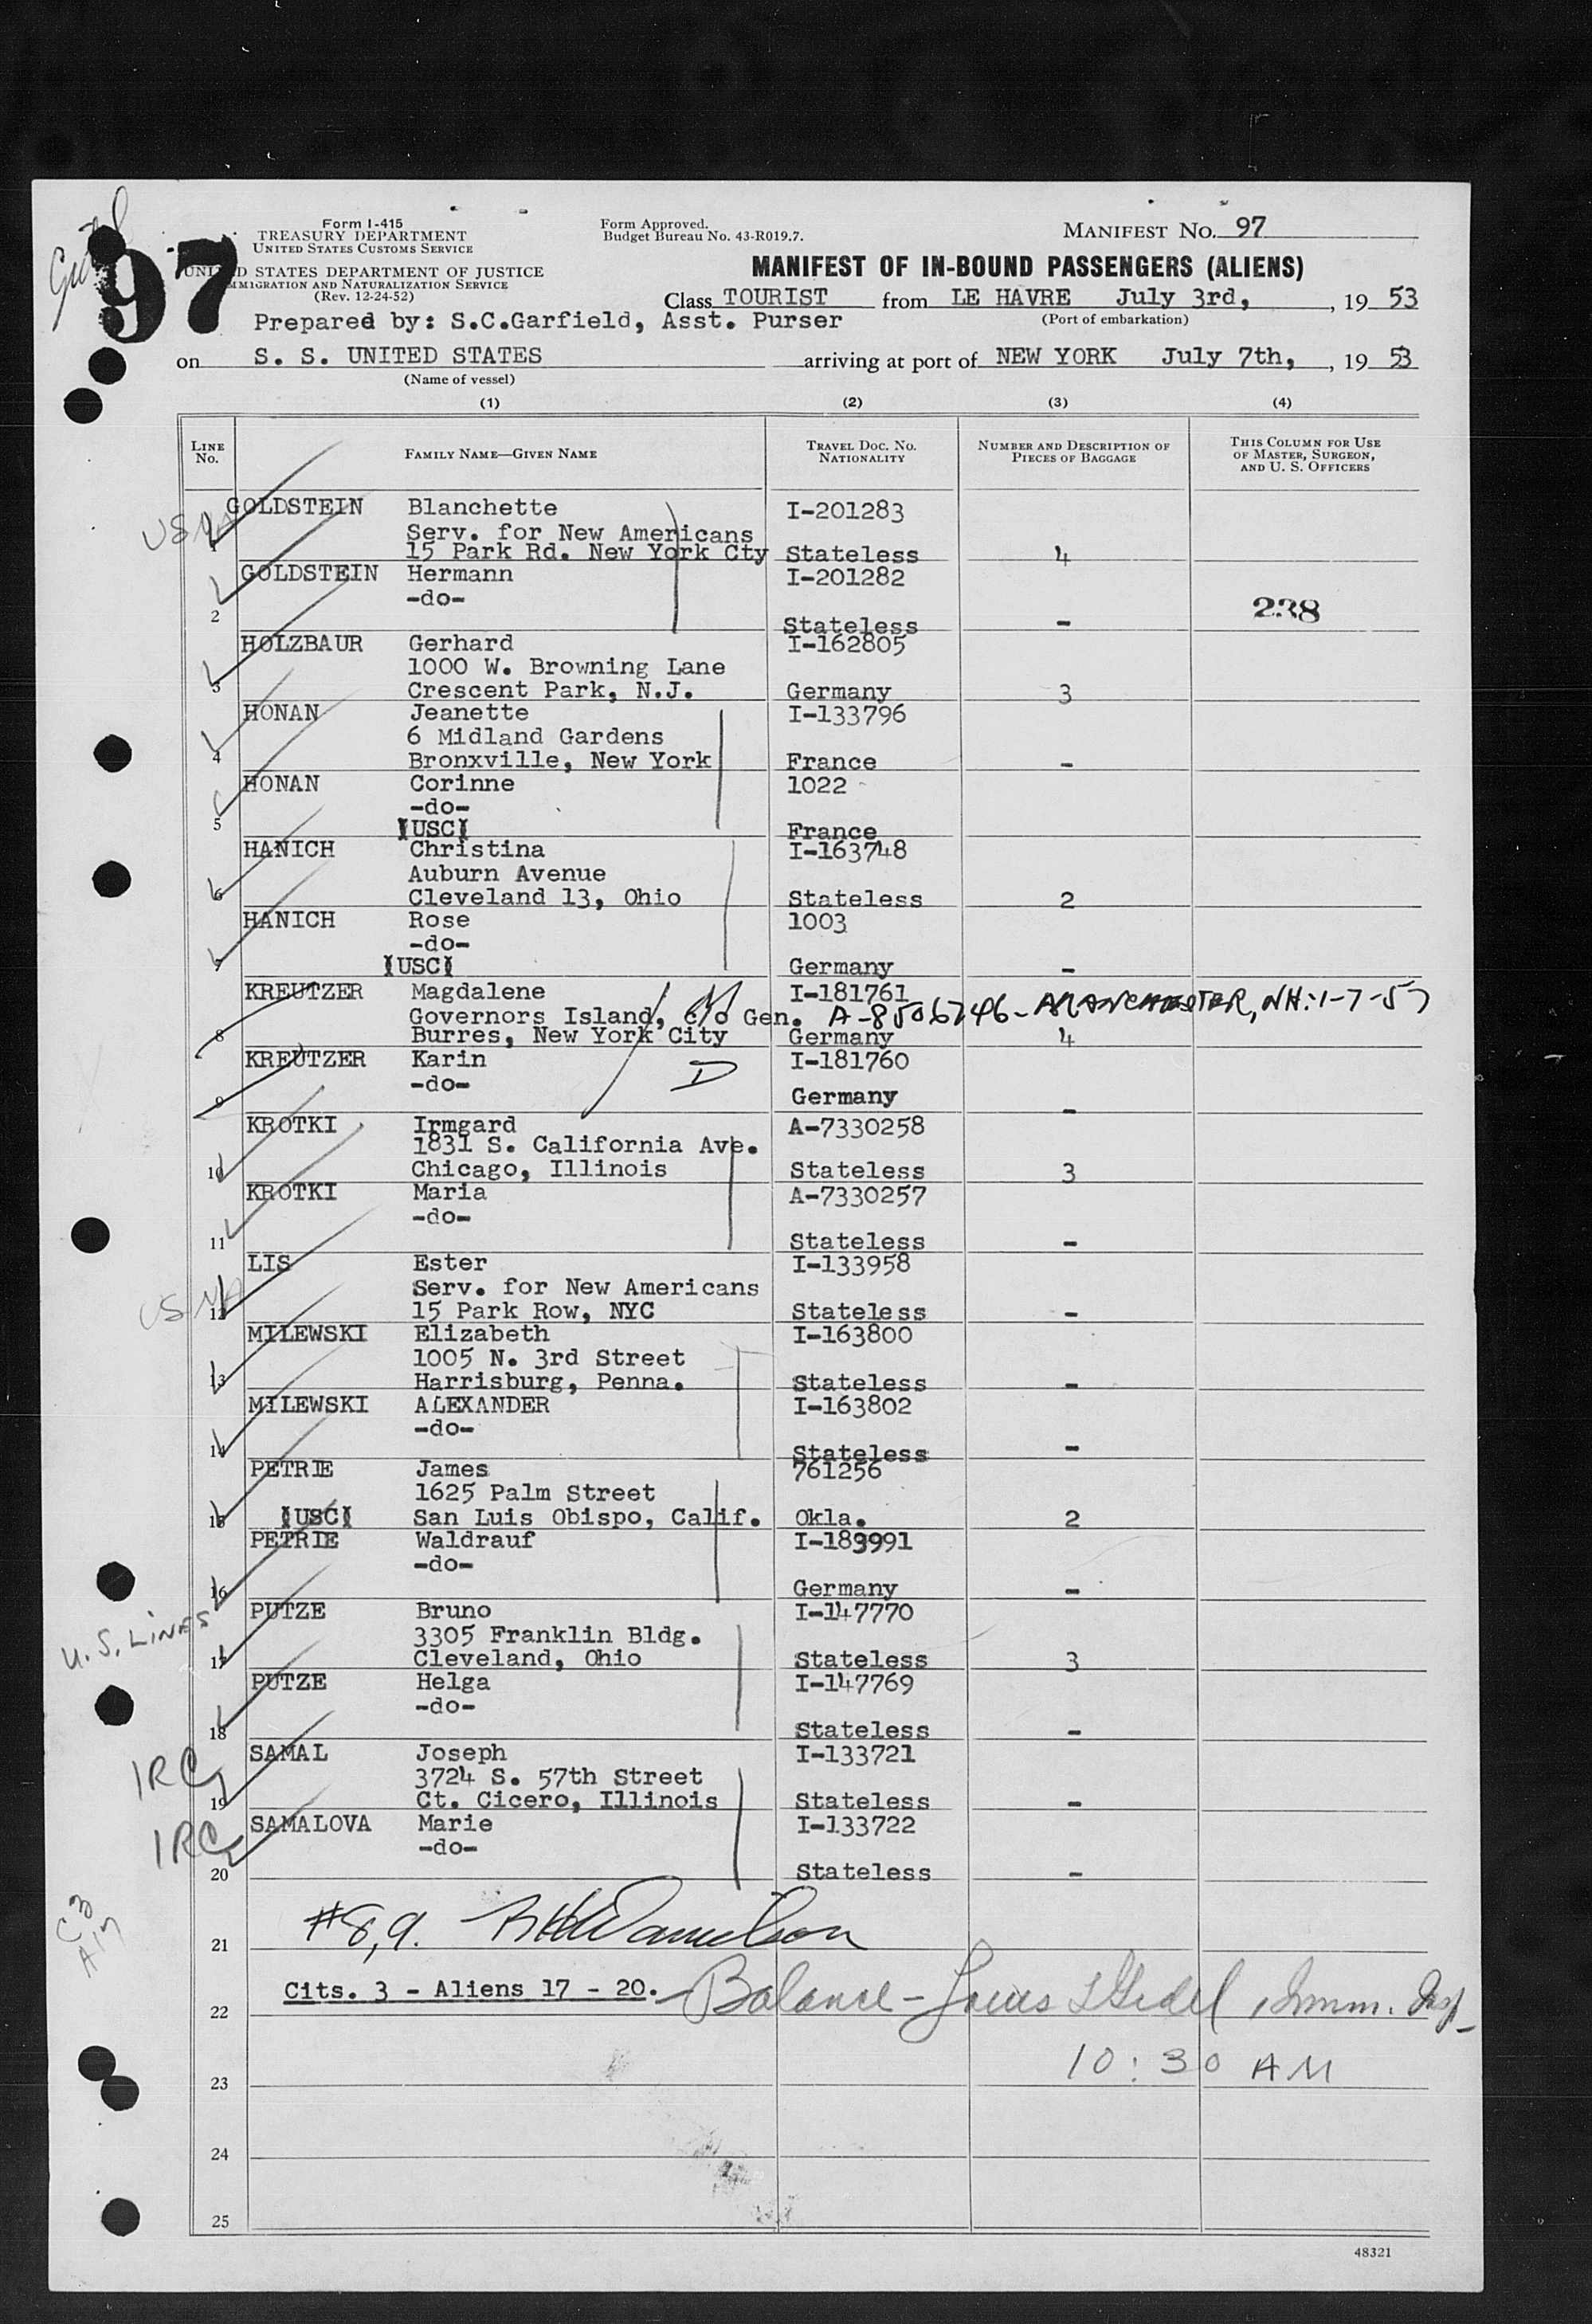 97
Form I-415
TREASURY DEPARTMENT
UNITED STATES CUSTOMS SERVICE
UNITED STATES DEPARTMENT OF JUSTICE
IMMIGRATION AND NATURALIZATION SERVICE
(Rev. 12-24-52)
Form Approved.
Budget Bureau No. 43-R019.7.
MANIFEST NO. 97
MANIFEST OF IN-BOUND PASSENGERS (ALIENS)
Class TOURIST from LE HAVRE July 3rd, , 19 53
(Port of embarkation)
Prepared by: S.C.Garfield, Asst. Purser
on S. S. UNITED STATES arriving at port of NEW YORK July 7th, , 19 53
(Name of vessel)
(1) (2) (3) (4)
LINE No. FAMILY NAME—GIVEN NAME TRAVEL DOC. NO. NATIONALITY NUMBER AND DESCRIPTION OF PIECES OF BAGGAGE THIS COLUMN FOR USE OF MASTER, SURGEON, AND U. S. OFFICERS
GOLDSTEIN Blanchette I-201283
USNA Serv. for New Americans
1 15 Park Rd. New York Cty Stateless 4
GOLDSTEIN Hermann I-201282
-do-
2 Stateless - 238
HOLZBAUR Gerhard I-162805
1000 W. Browning Lane
3 Crescent Park, N.J. Germany 3
HONAN Jeanette I-133796
6 Midland Gardens
4 Bronxville, New York France -
HONAN Corinne 1022
-do-
5 (USC) France
HANICH Christina I-163748
Auburn Avenue
6 Cleveland 13, Ohio Stateless 2
HANICH Rose 1003
-do-
7 (USC) Germany -
KREUTZER Magdalene I-181761
Governors Island, c/o Gen. A-8506746-MANCHESTER, NH:1-7-57
8 Burres, New York City Germany 4
KREUTZER Karin I-181760
-do- D
9 Germany -
KROTKI Irmgard A-7330258
1831 S. California Ave.
10 Chicago, Illinois Stateless 3
KROTKI Maria A-7330257
-do-
11 Stateless -
LIS Ester I-133958
Serv. for New Americans
USNA 12 15 Park Row, NYC Stateless -
MILEWSKI Elizabeth I-163800
1005 N. 3rd Street
13 Harrisburg, Penna. Stateless -
MILEWSKI ALEXANDER I-163802
-do-
14 Stateless -
PETRIE James 761256
1625 Palm Street
15 (USC) San Luis Obispo, Calif. Okla. 2
PETRIE Waldrauf I-189991
-do-
16 Germany -
PUTZE Bruno I-147770
U.S. LINES 3305 Franklin Bldg.
17 Cleveland, Ohio Stateless 3
PUTZE Helga I-147769
-do-
18 Stateless -
SAMAL Joseph I-133721
IRC 3724 S. 57th Street
19 Ct. Cicero, Illinois Stateless -
SAMALOVA Marie I-133722
IRC -do-
20 Stateless -
C3
A17
21 #8,9.
22 Cits. 3 - Aliens 17 - 20. Balance - Imm. Insp.
23 10:30 AM
24
25
48321